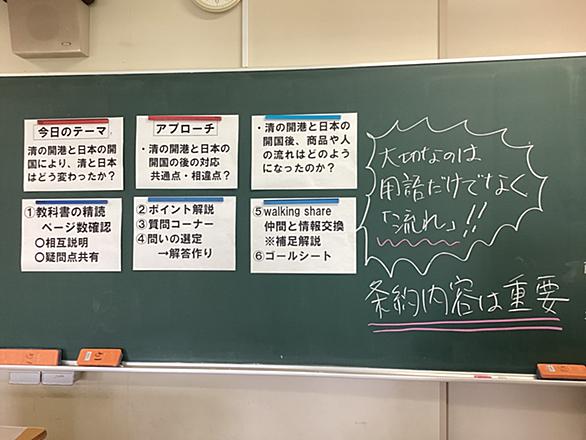 今日のテーマ
清の開港と日本の開
国により、清と日本
はどう変わったか？
アプローチ
・清の開港と日本の
開国の後の対応
共通点・相違点？
・清の開港と日本の
開国後、商品や人
の流れはどのよう
になったのか？
①教科書の精読
ページ数確認
〇相互説明
〇疑問点共有
②ポイント解説
③質問コーナー
④問いの選定
→解答作り
⑤walking share
仲間と情報交換
※補足解説
⑥ゴールシート
大切なのは
用語だけでなく
「流れ」!!
条約内容は重要